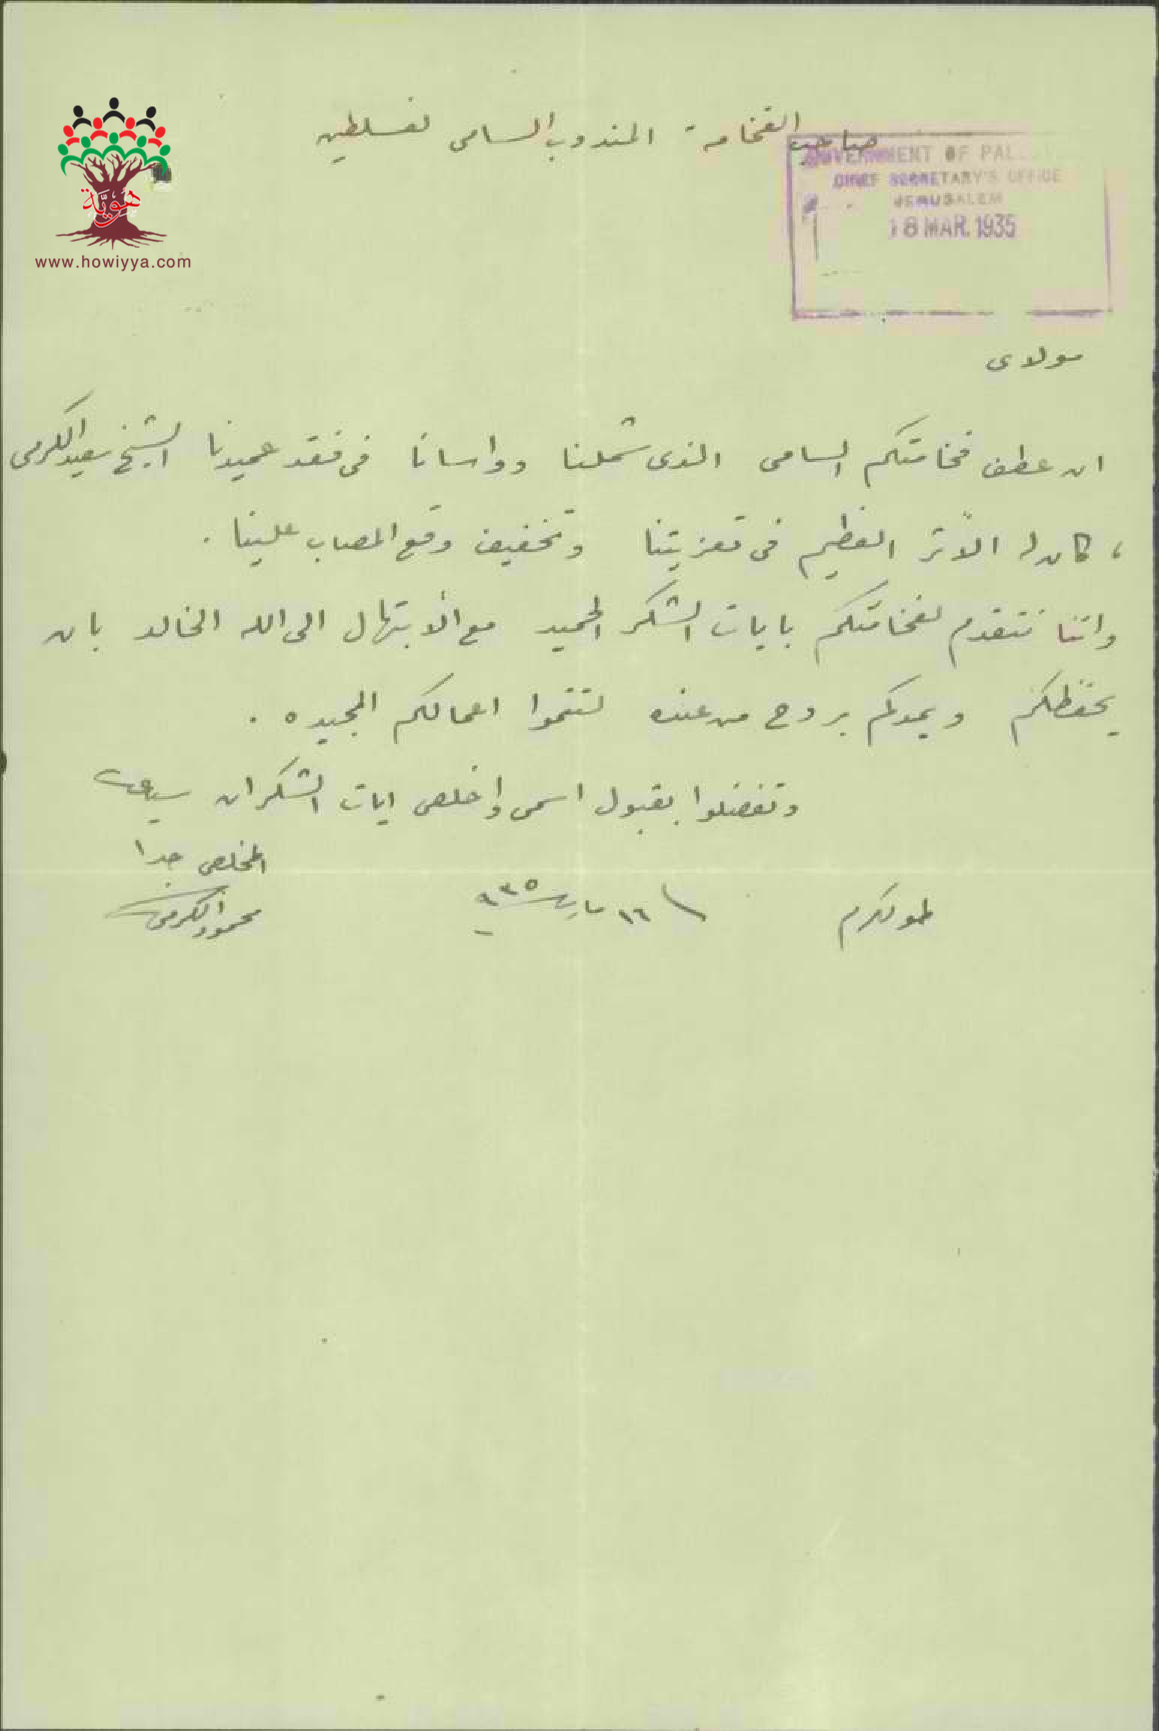 صاحب الفخامة المندوب السامى لفلسطين
GOVERNMENT OF PAL
CHIEF SECRETARY'S OFFICE
JERUSALEM
18 MAR. 1935
هوية
www.howiyya.com
مولاى
ان عطف فخامتكم السامى الذى شملنا وواسانا فى فقد عميدنا الشيخ سعيد الكرمى
، كان له الأثر العظيم فى تعزيتنا وتخفيف وقع المصاب علينا .
واننا نتقدم لفخامتكم بايات الشكر الحميد مع الأبتهال الى الله الخالد بان
يحفظكم ويمدكم بروح من عنده لتتموا اعمالكم المجيده .
وتفضلوا بقبول اسمى واخلص ايات الشكران
المخلص جدا
طولكرم ١٦ مارس ٩٣٥
محمود الكرمى